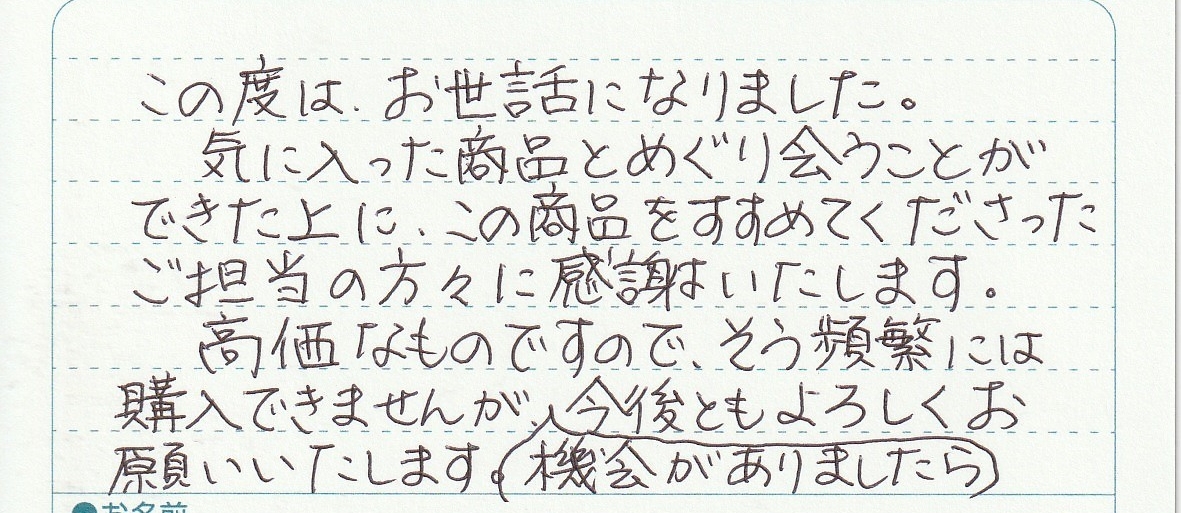 この度は、お世話になりました。
気に入った商品とめぐり会うことが
できた上に、この商品をすすめてくださった
ご担当の方々に感謝はいたします。
高価なものですので、そう頻繁には
購入できませんが、今後ともよろしくお
願いいたします。(機会がありましたら)
●お名前